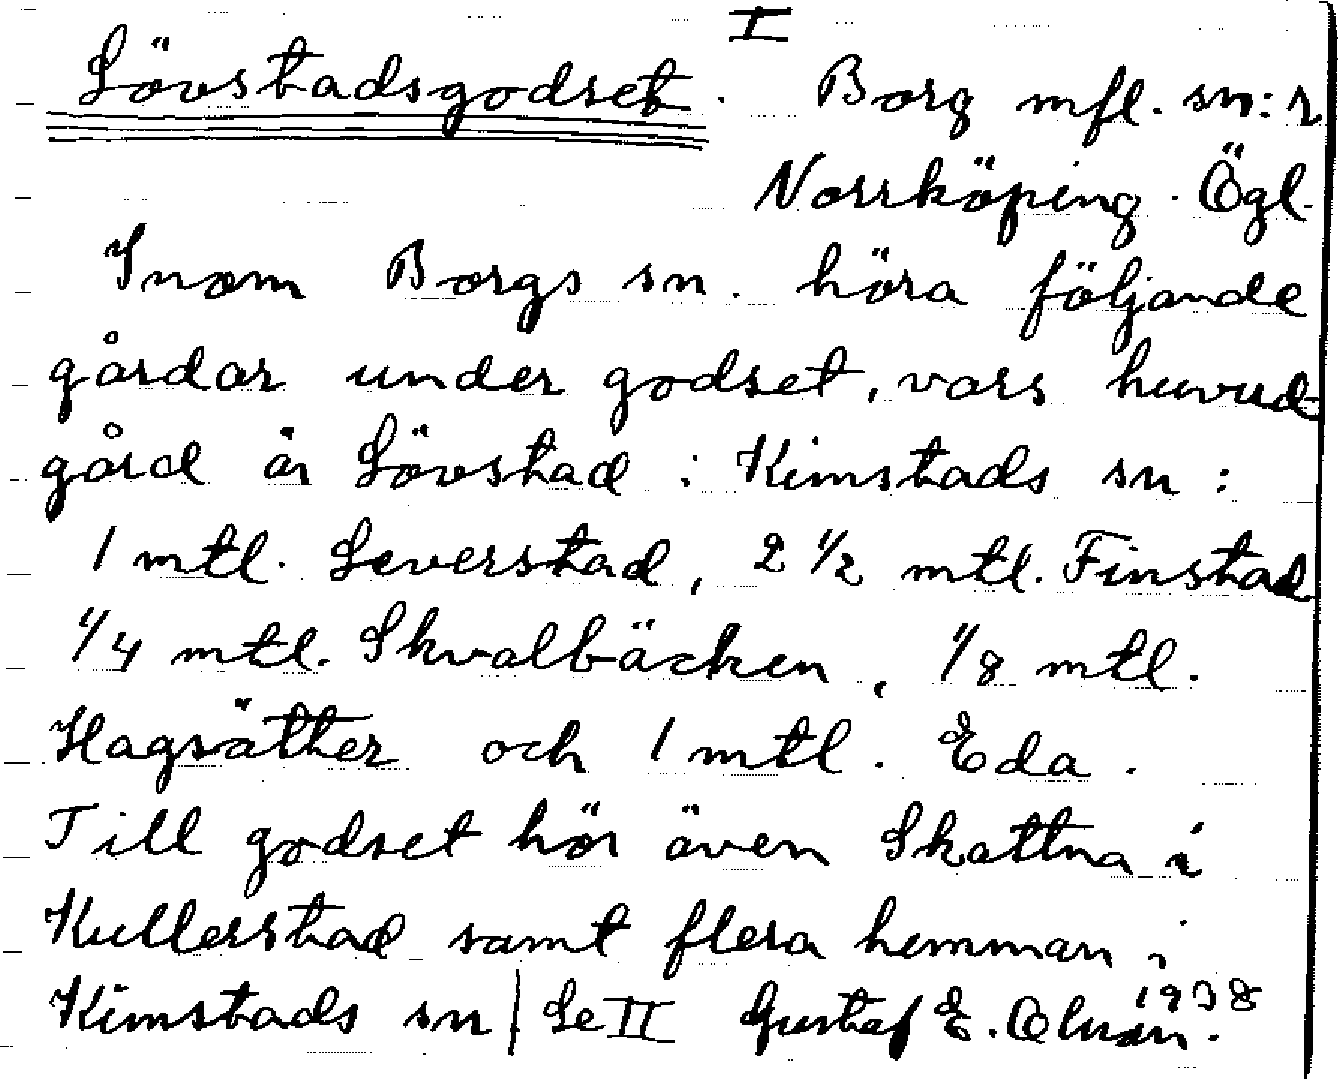 I
Lövstadsgodset. Borg mfl. sn:r
Norrköping. Ögl.
Inom Borgs sn. höra följande
gårdar under godset, vars huvud-
gård är Lövstad i Kimstads sn:
1 mtl. Leverstad, 2 1/2 mtl. Finstad
1/4 mtl. Skvalbäcken, 1/8 mtl.
Hagsätter och 1 mtl. Eda.
Till godset hör även Skattna i
Kullerstad samt flera hemman i
Kimstads sn | Se II Gustaf E. 1938